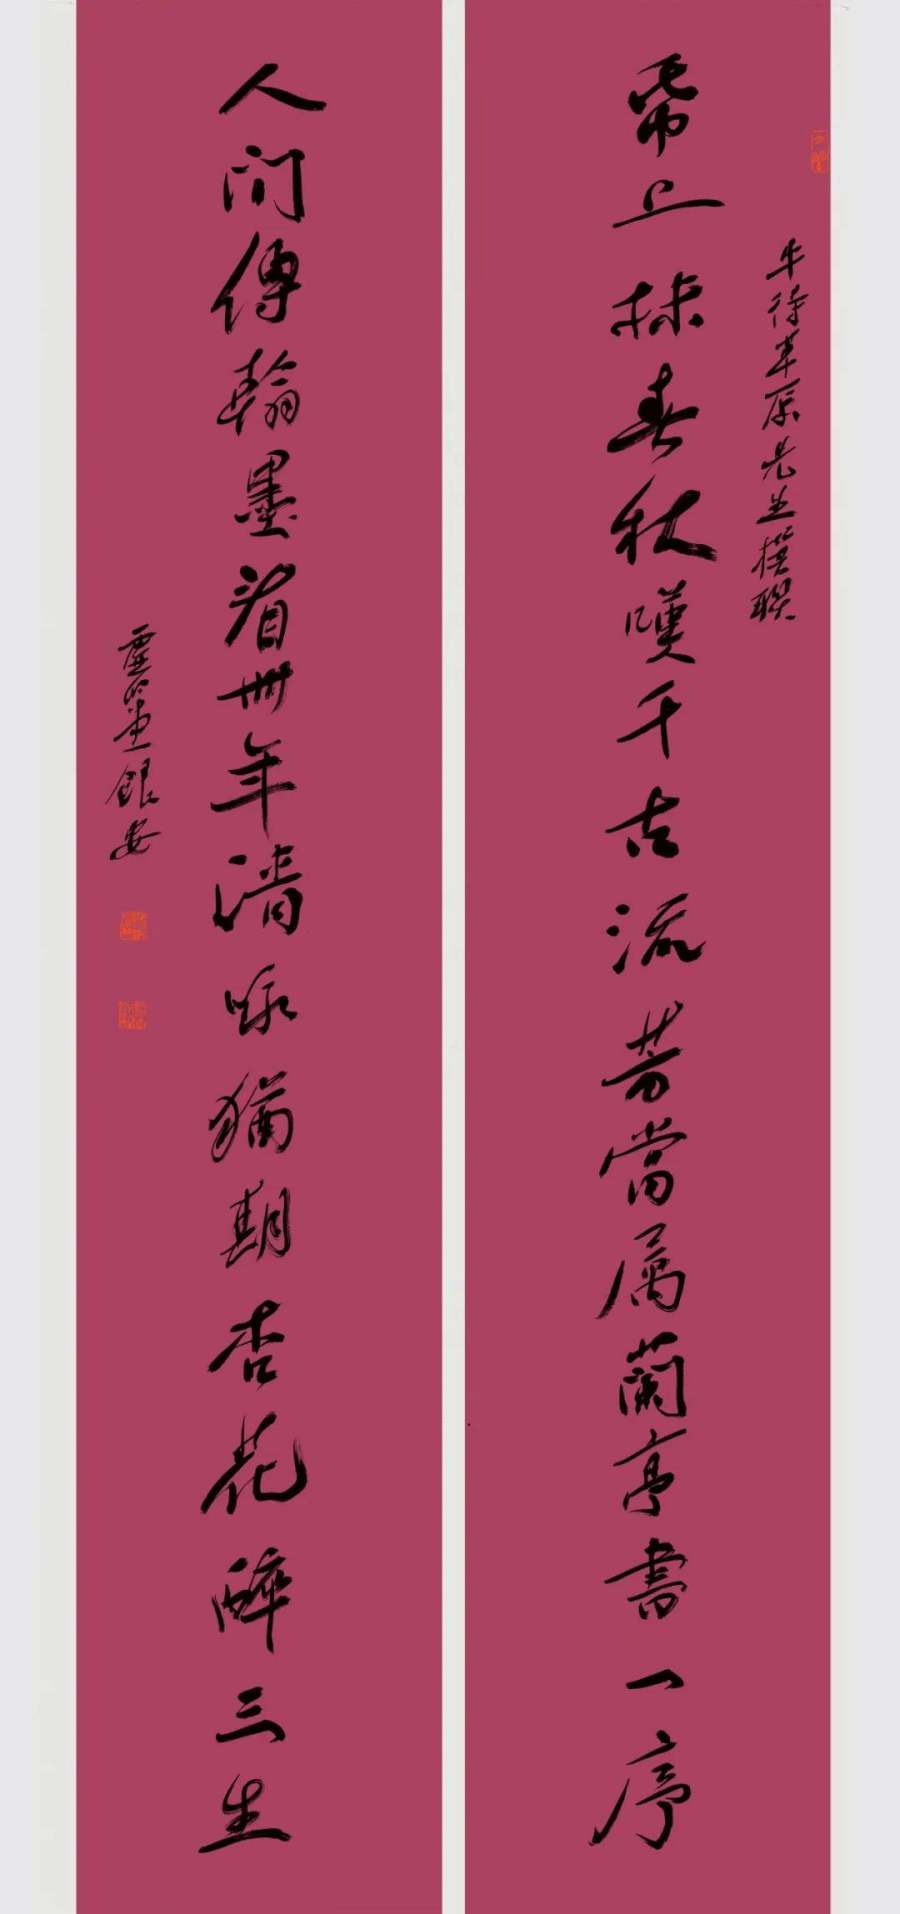 牛待草原先生撰聯
帋上抹春秋嘆千古流芳當属蘭亭書一序
人间傳翰墨看卌年清咏猶期杏花醉三生
銀安